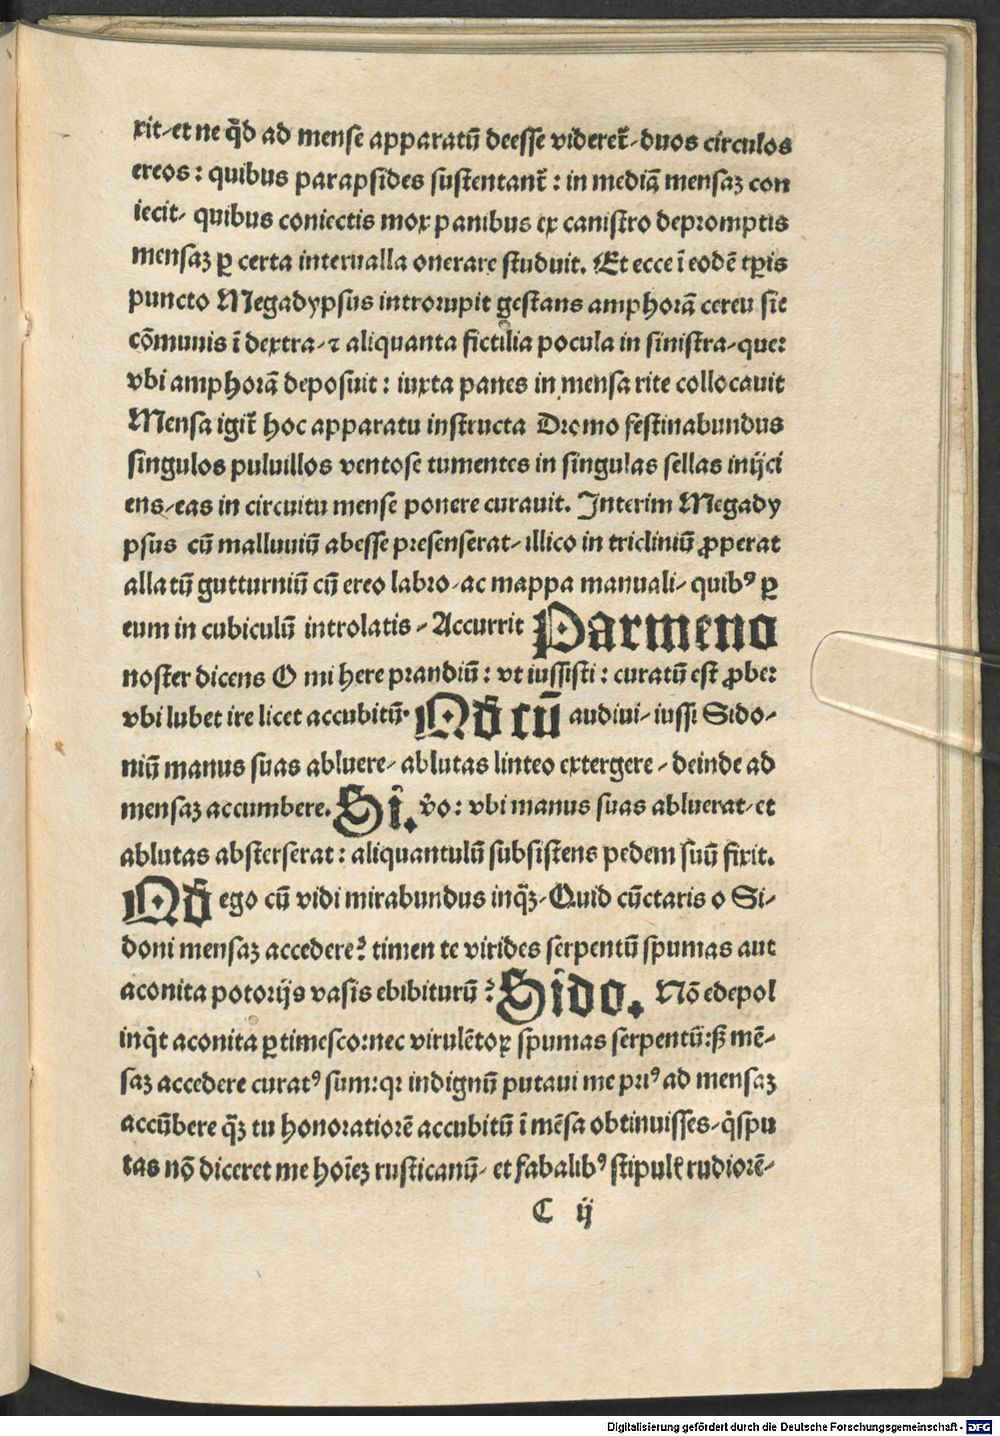 xit-et ne qď ad mense apparatū deesse videreť-duos circulos
ereos: quibus parapsides sustentanť: in mediā mensaʒ con
iecit- quibus coniectis mox panibus ex canistro depromptis
mensaʒ ꝑ certa interualla onerare studuit. Et ecce ī eodē tꝑis
puncto Megadypsus introrupit gestans amphorā cereu sie
cōmunis ī dextra-⁊ aliquanta fictilia pocula in sinistra-que:
vbi amphorā deposuit: iuxta panes in mensa rite collocauit
Mensa igiť hoc apparatu instructa Dromo festinabundus
singulos puluillos ventose tumentes in singulas sellas inijci
ens-eas in circuitu mense ponere curauit. Interim Megady
psus cū malluuiū abesse presenserat-illico in tricliniū ꝓperat
allatū gutturniū cū ereo labro-ac mappa manuali-quibꝰ ꝑ
eum in cubiculū introlatis-Accurrit Parmeno
noster dicens O mi here prandiū: vt iussisti: curatū est ꝓbe:
vbi lubet ire licet accubitū. Qď cū audiui-iussi Sido-
niū manus suas abluere-ablutas linteo extergere-deinde ad
mensaʒ accumbere. Sī. v̊o: vbi manus suas abluerat-et
ablutas absterserat: aliquantulū subsistens pedem suū fixit.
Qď ego cū vidi mirabundus inqʒ̄-Quid cūctaris o Si-
doni mensaʒ accedere? timen te virides serpentū spumas aut
aconita potorijs vasis ebibiturū? Sīdo. Nō edepol
inq̇t aconita ꝑtimesco:nec virulētoꝝ spumas serpentū:ꝭ mē-
saʒ accedere curatꝰ sum:qꝛ indignū putaui me priꝰ ad mensaʒ
accūbere qʒ̄ tu honoratiorē accubitū ī mēsa obtinuisses-q̇spu
tas nō diceret me hoīeʒ rusticanū-et fabalibꝰ stipulꝭ rudiorē-
C ij
Digitalisierung gefördert durch die Deutsche Forschungsgemeinschaft - DFG